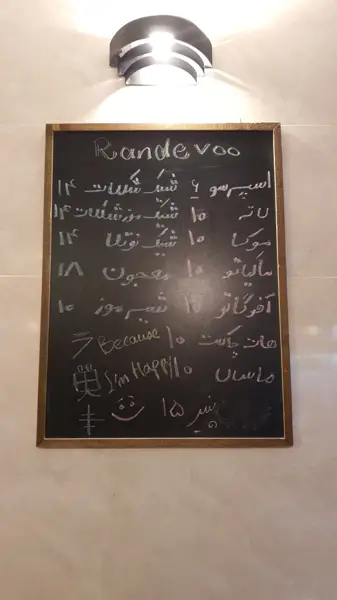 Randevoo
اسپرسو ۶ شیک شکلات ۱۴
لاته ۱۰ شیک موز شکلات ۱۴
موکا ۱۰ شیک نوتلا ۱۴
ماکیاتو ۱۰ معجون ۱۸
آفوگاتو ۱۵ شیر موز ۱۰
هات چاکلت ۱۰ Because
ماسالا ۱۰ I'm Happy
شیر ۱۵